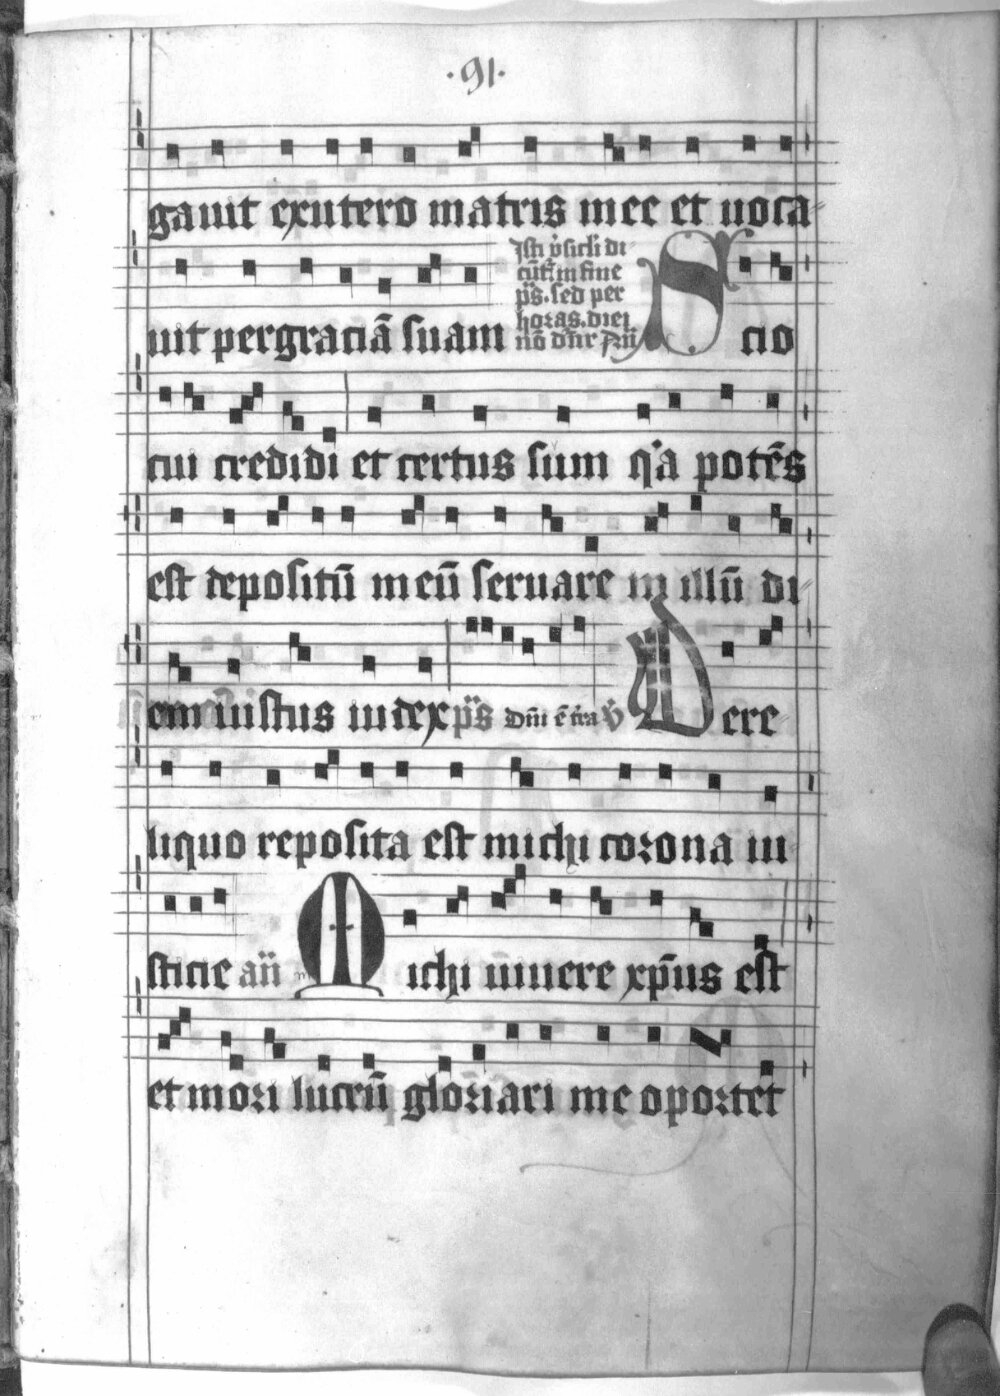 ·91·
gauit exutero matris mee et uoca
Isti v̉sicli di
cūt̄ in fine
p̄s. sed per
horas. diei
nō dn̄r
uit pergraciā suam S cio
cui credidi et certus sum q'a potēs
est depositū meū seruare in illū di
em iustus iudex p̄s Dn̄i ē t̄ra v̉ D ere
liquo reposita est michi corona iu
sticie an̄ M ichi uiuere xp̄us est
et mori lucrū gloriari me oportet